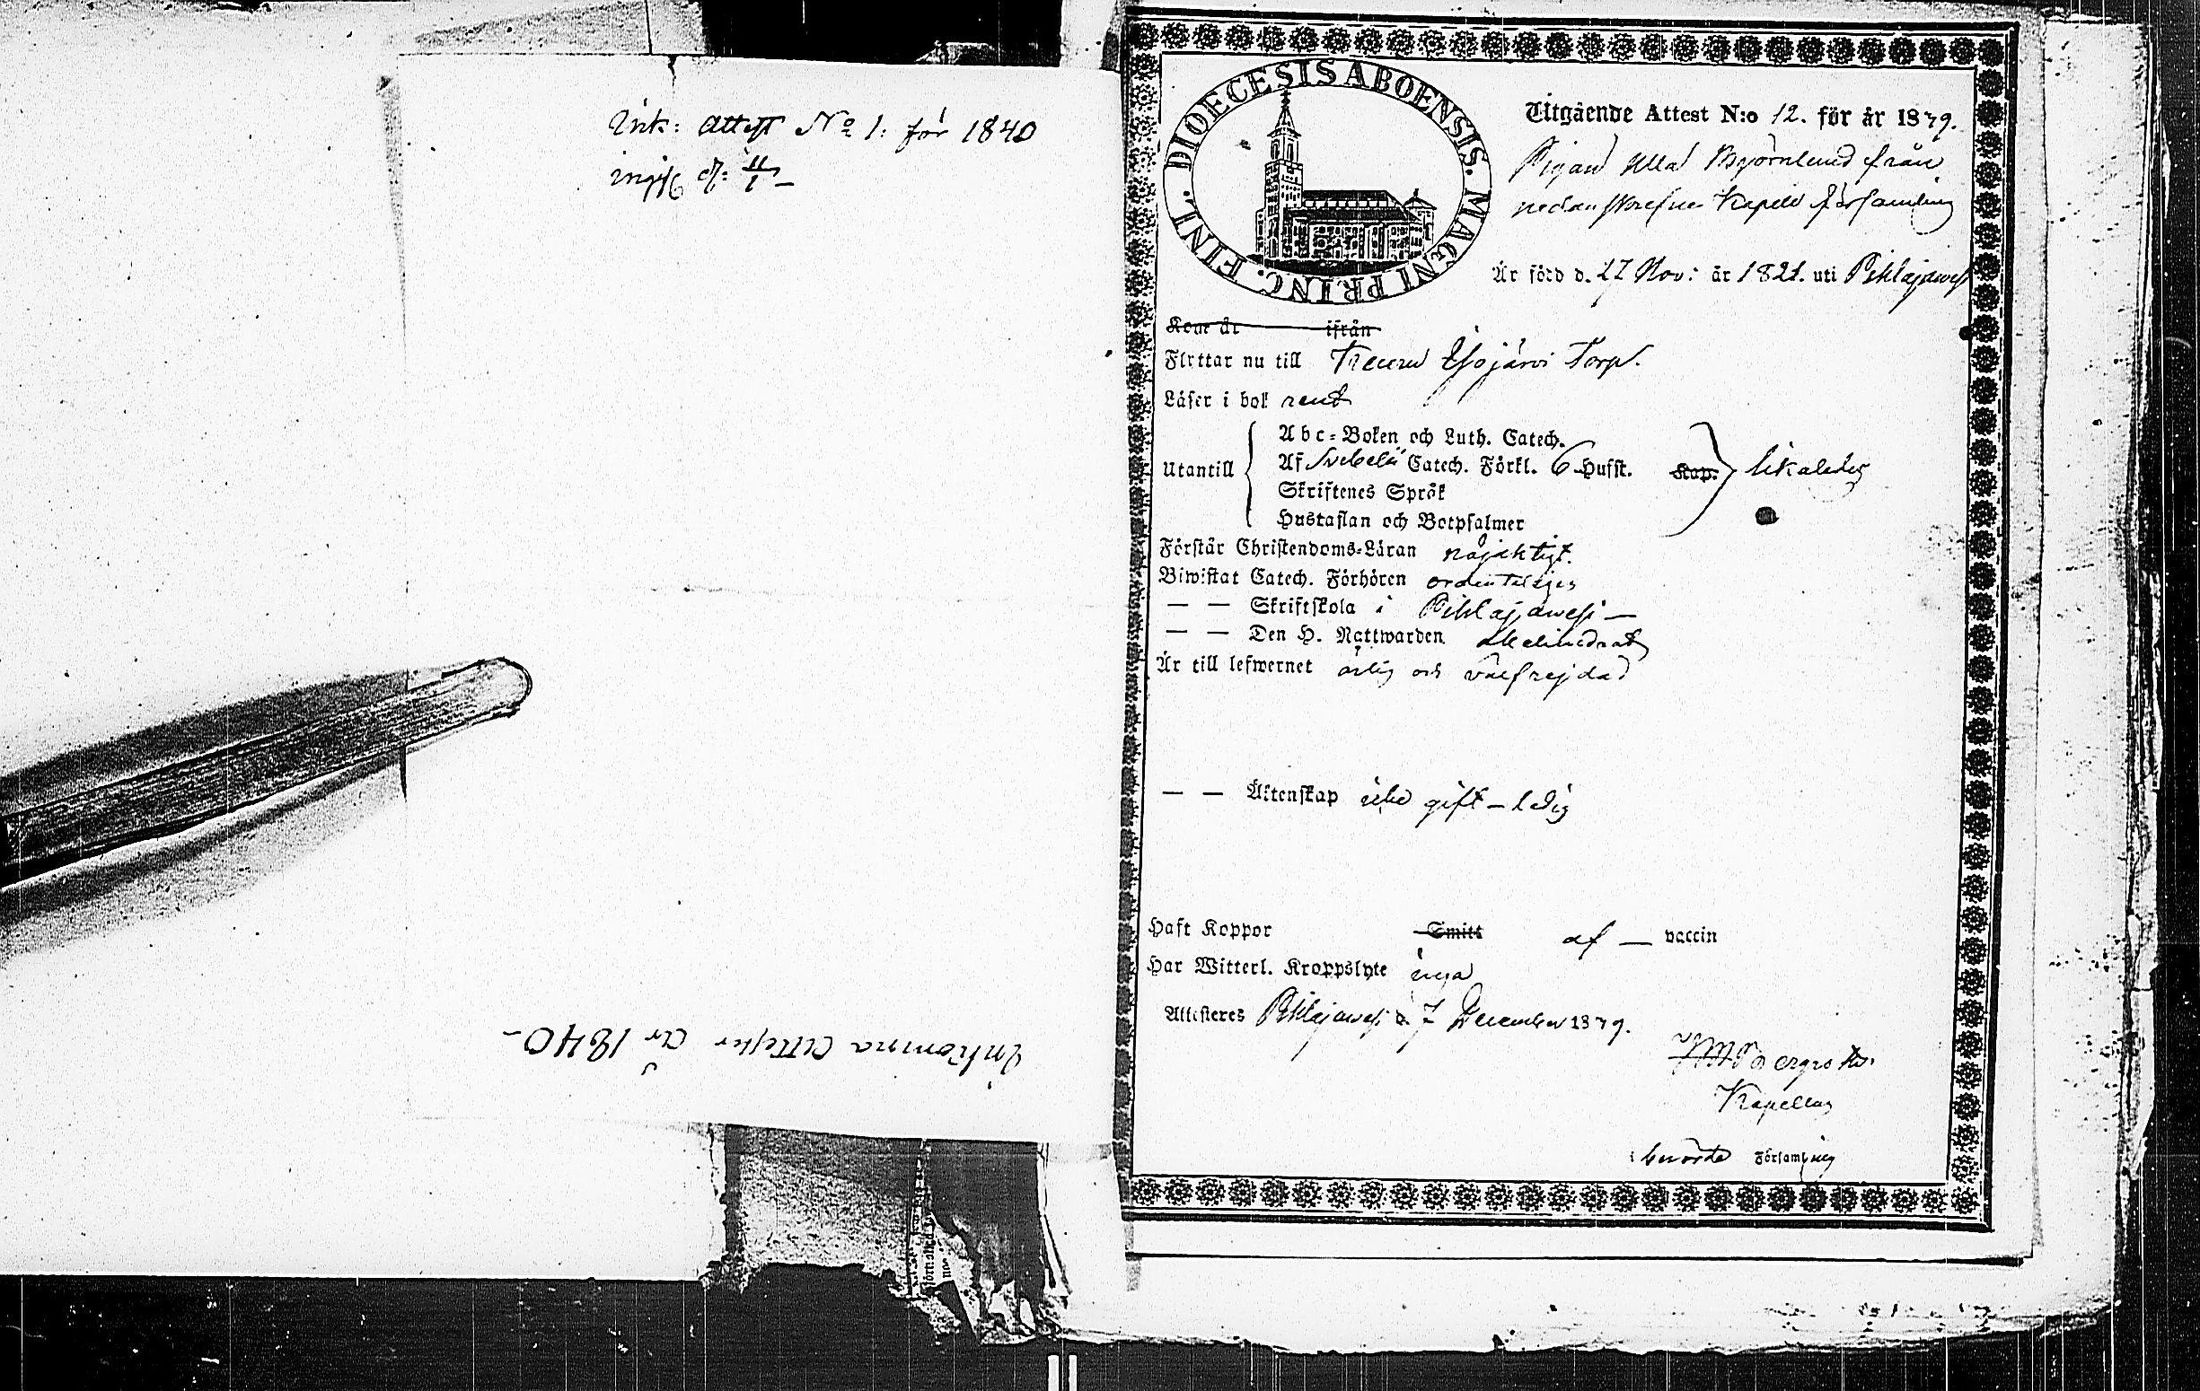 Ink: attest No 1: för 1840
ingifv d: 11/1 –
Inkomna Attester år 1840 –
DIOECESIS ABOENSIS. MAGNI PRINC. FINL.
Utgående Attest N:o 12. för år 1839.
Pigan Ulla Björnlund från
nedanskrefne Kapell församling
Är född d. 27 Nov: år 1821. uti Pihlajawesi
Kom år ifrån
Flyttar nu till Keuru Isojärvi Torp.
Läser i bok rent
Abc-Boken och Luth. Catech.
Utantill Af Svebelii Catech. Förkl. 6 Hufst. Kap. likaledes
Skriftenes Språk
Hustaflan och Botpsalmer
Förstår Christendoms-Läran nöjaktigt.
Biwistat Catech. Förhören ordenteligen
— — Skriftskola i Pihlajawesi —
— — Den H. Nattwarden
Är till lefwernet ärlig och välfrejdad
— — Äktenskap icke gift – ledig
Haft Koppor Smitt af — vaccin
Har Witterl. Kroppslyte inga
Attesteras Pihlajawesi d. 7 December 1839.
Bergroth.
Kapellan
i berörde Församling